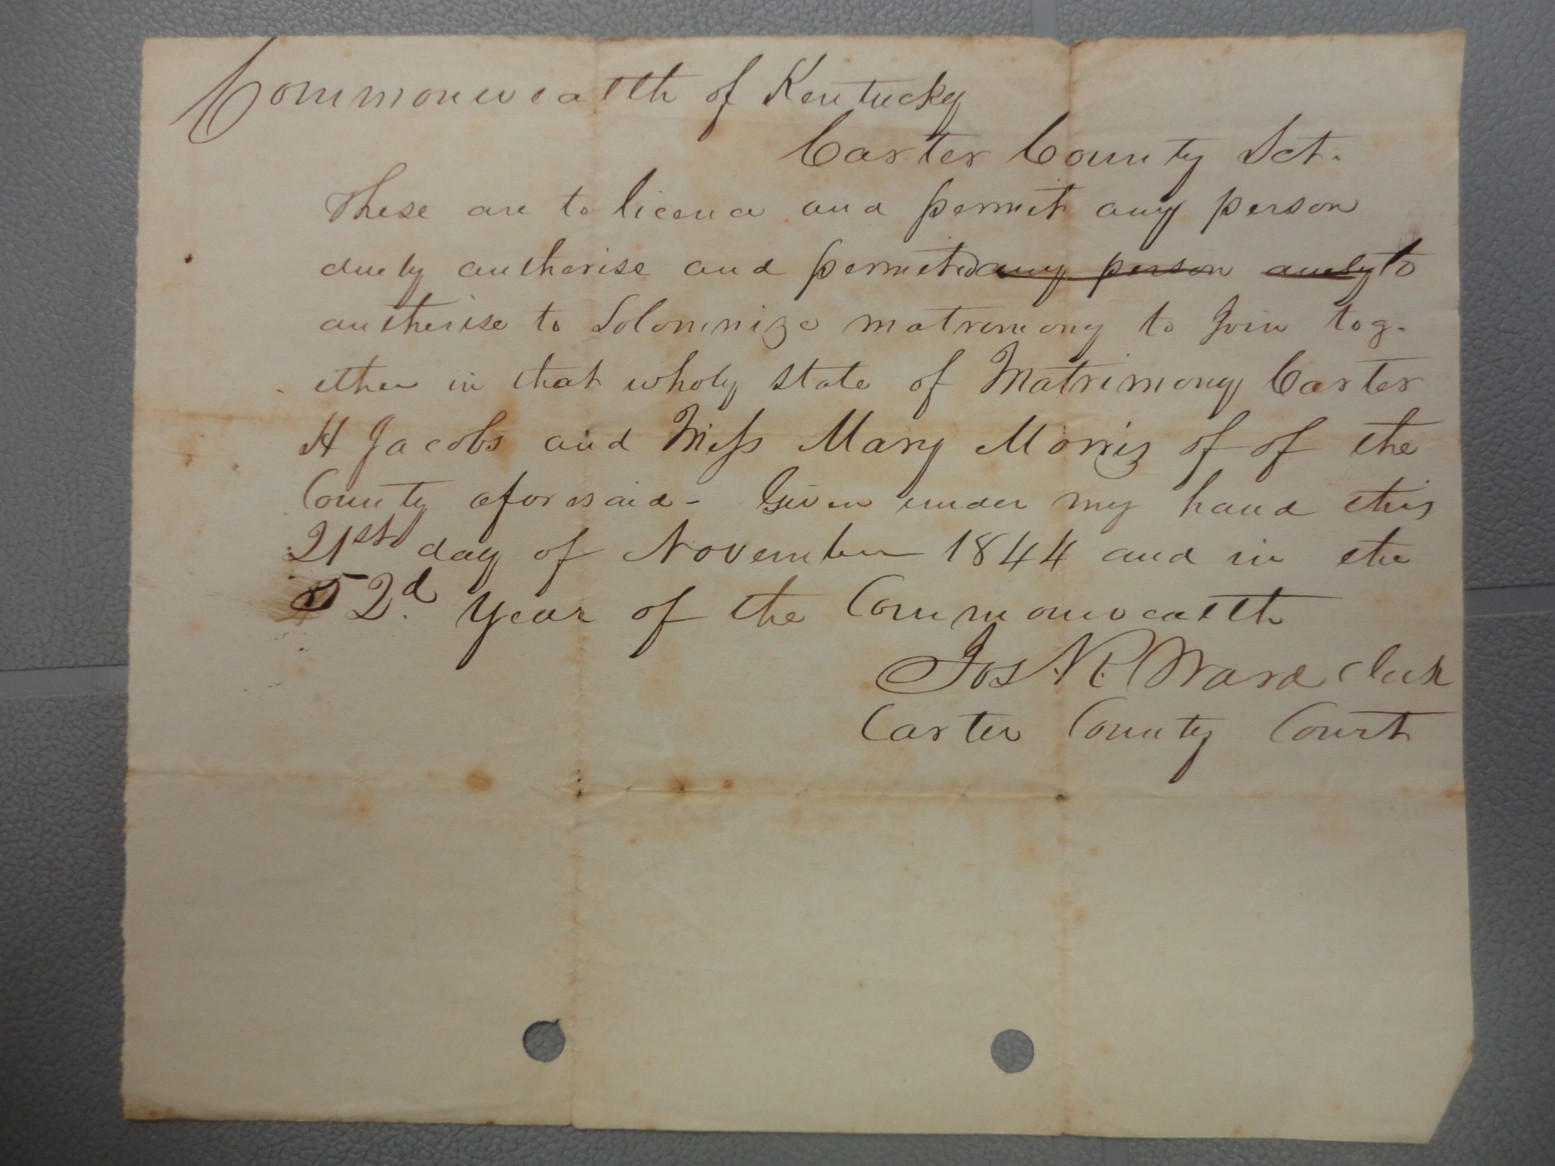 Commonwealth of Kentucky
Carter County Sct.
These are to licence and permit any person
duely autherise and permited any person duely to
autherise to Solomnize matrimony to Join tog-
ether in that wholy state of Matrimony Carter
H Jacobs and Miss Mary Morris of of the
County aforesaid - Given under my hand this
21st day of November 1844 and in the
52d. year of the Commonwealth
Jos N. R Ward Clerk
Carter County Court